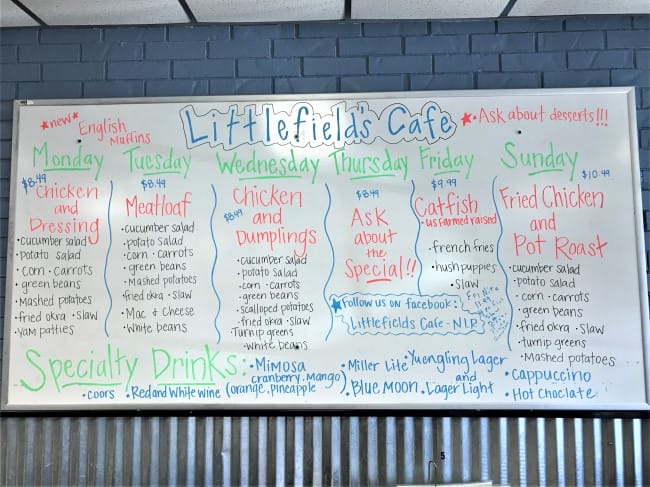 *new*
English
Muffins
Littlefield's Cafe
*Ask about desserts!!!
Monday
$8.49
Chicken
and
Dressing
• cucumber salad
• potato salad
• corn • carrots
• green beans
• Mashed potatoes
• fried okra • slaw
• yam patties
Tuesday
$8.49
Meatloaf
• cucumber salad
• potato salad
• corn • carrots
• green beans
• Mashed potatoes
• fried okra • slaw
• Mac & Cheese
• White beans
Wednesday
$8.49
Chicken
and
Dumplings
• cucumber salad
• potato salad
• corn • carrots
• green beans
• scalloped potatoes
• fried okra • slaw
• Turnip greens
• white beans
Thursday
$8.49
Ask
about
the
Special!!
Friday
$9.99
Catfish
- US Farm raised
• french fries
• hush puppies
• slaw
Sunday
$10.49
Fried Chicken
and
Pot Roast
• cucumber salad
• potato salad
• corn • carrots
• green beans
• fried okra • slaw
• turnip greens
• Mashed potatoes
Follow us on facebook:
Littlefields Cafe - NLR
Specialty Drinks:
• Mimosa
(orange, pineapple
cranberry, mango)
• Miller Lite
Yuengling Lager
and
Lager Light
• Cappuccino
• coors
• Red and White wine
• Blue Moon
• Hot Choclate
5